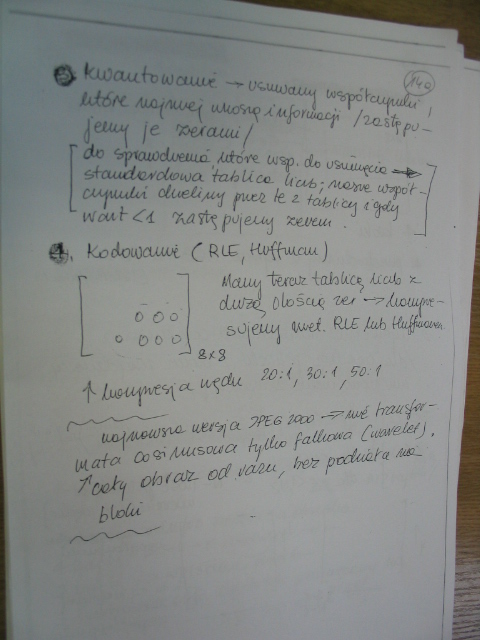 140
3. Kwantowanie → usuwamy współczynniki,
które najmniej wnoszą informacji /zastępu-
jemy je zerami/
[do sprawdzenia, które wsp. do usunięcia →
standardowa tablica liczb; nasze współ-
czynniki dzielimy przez te z tablicy i gdy
wart < 1 zastępujemy zerem.]
4. Kodowanie (RLE, Huffman)
Mamy teraz tablicę liczb z
dużą ilością zer → kompre-
sujemy met. RLE lub Huffmana.
0 0 0
0 0 0 0
8x8
↑ kompresja rzędu 20:1, 30:1, 50:1
najnowsza wersja JPEG 2000 → nie transfor-
mata cosinusowa tylko falkowa (wavelet).
↑ cały obraz od razu, bez podziału na
bloki